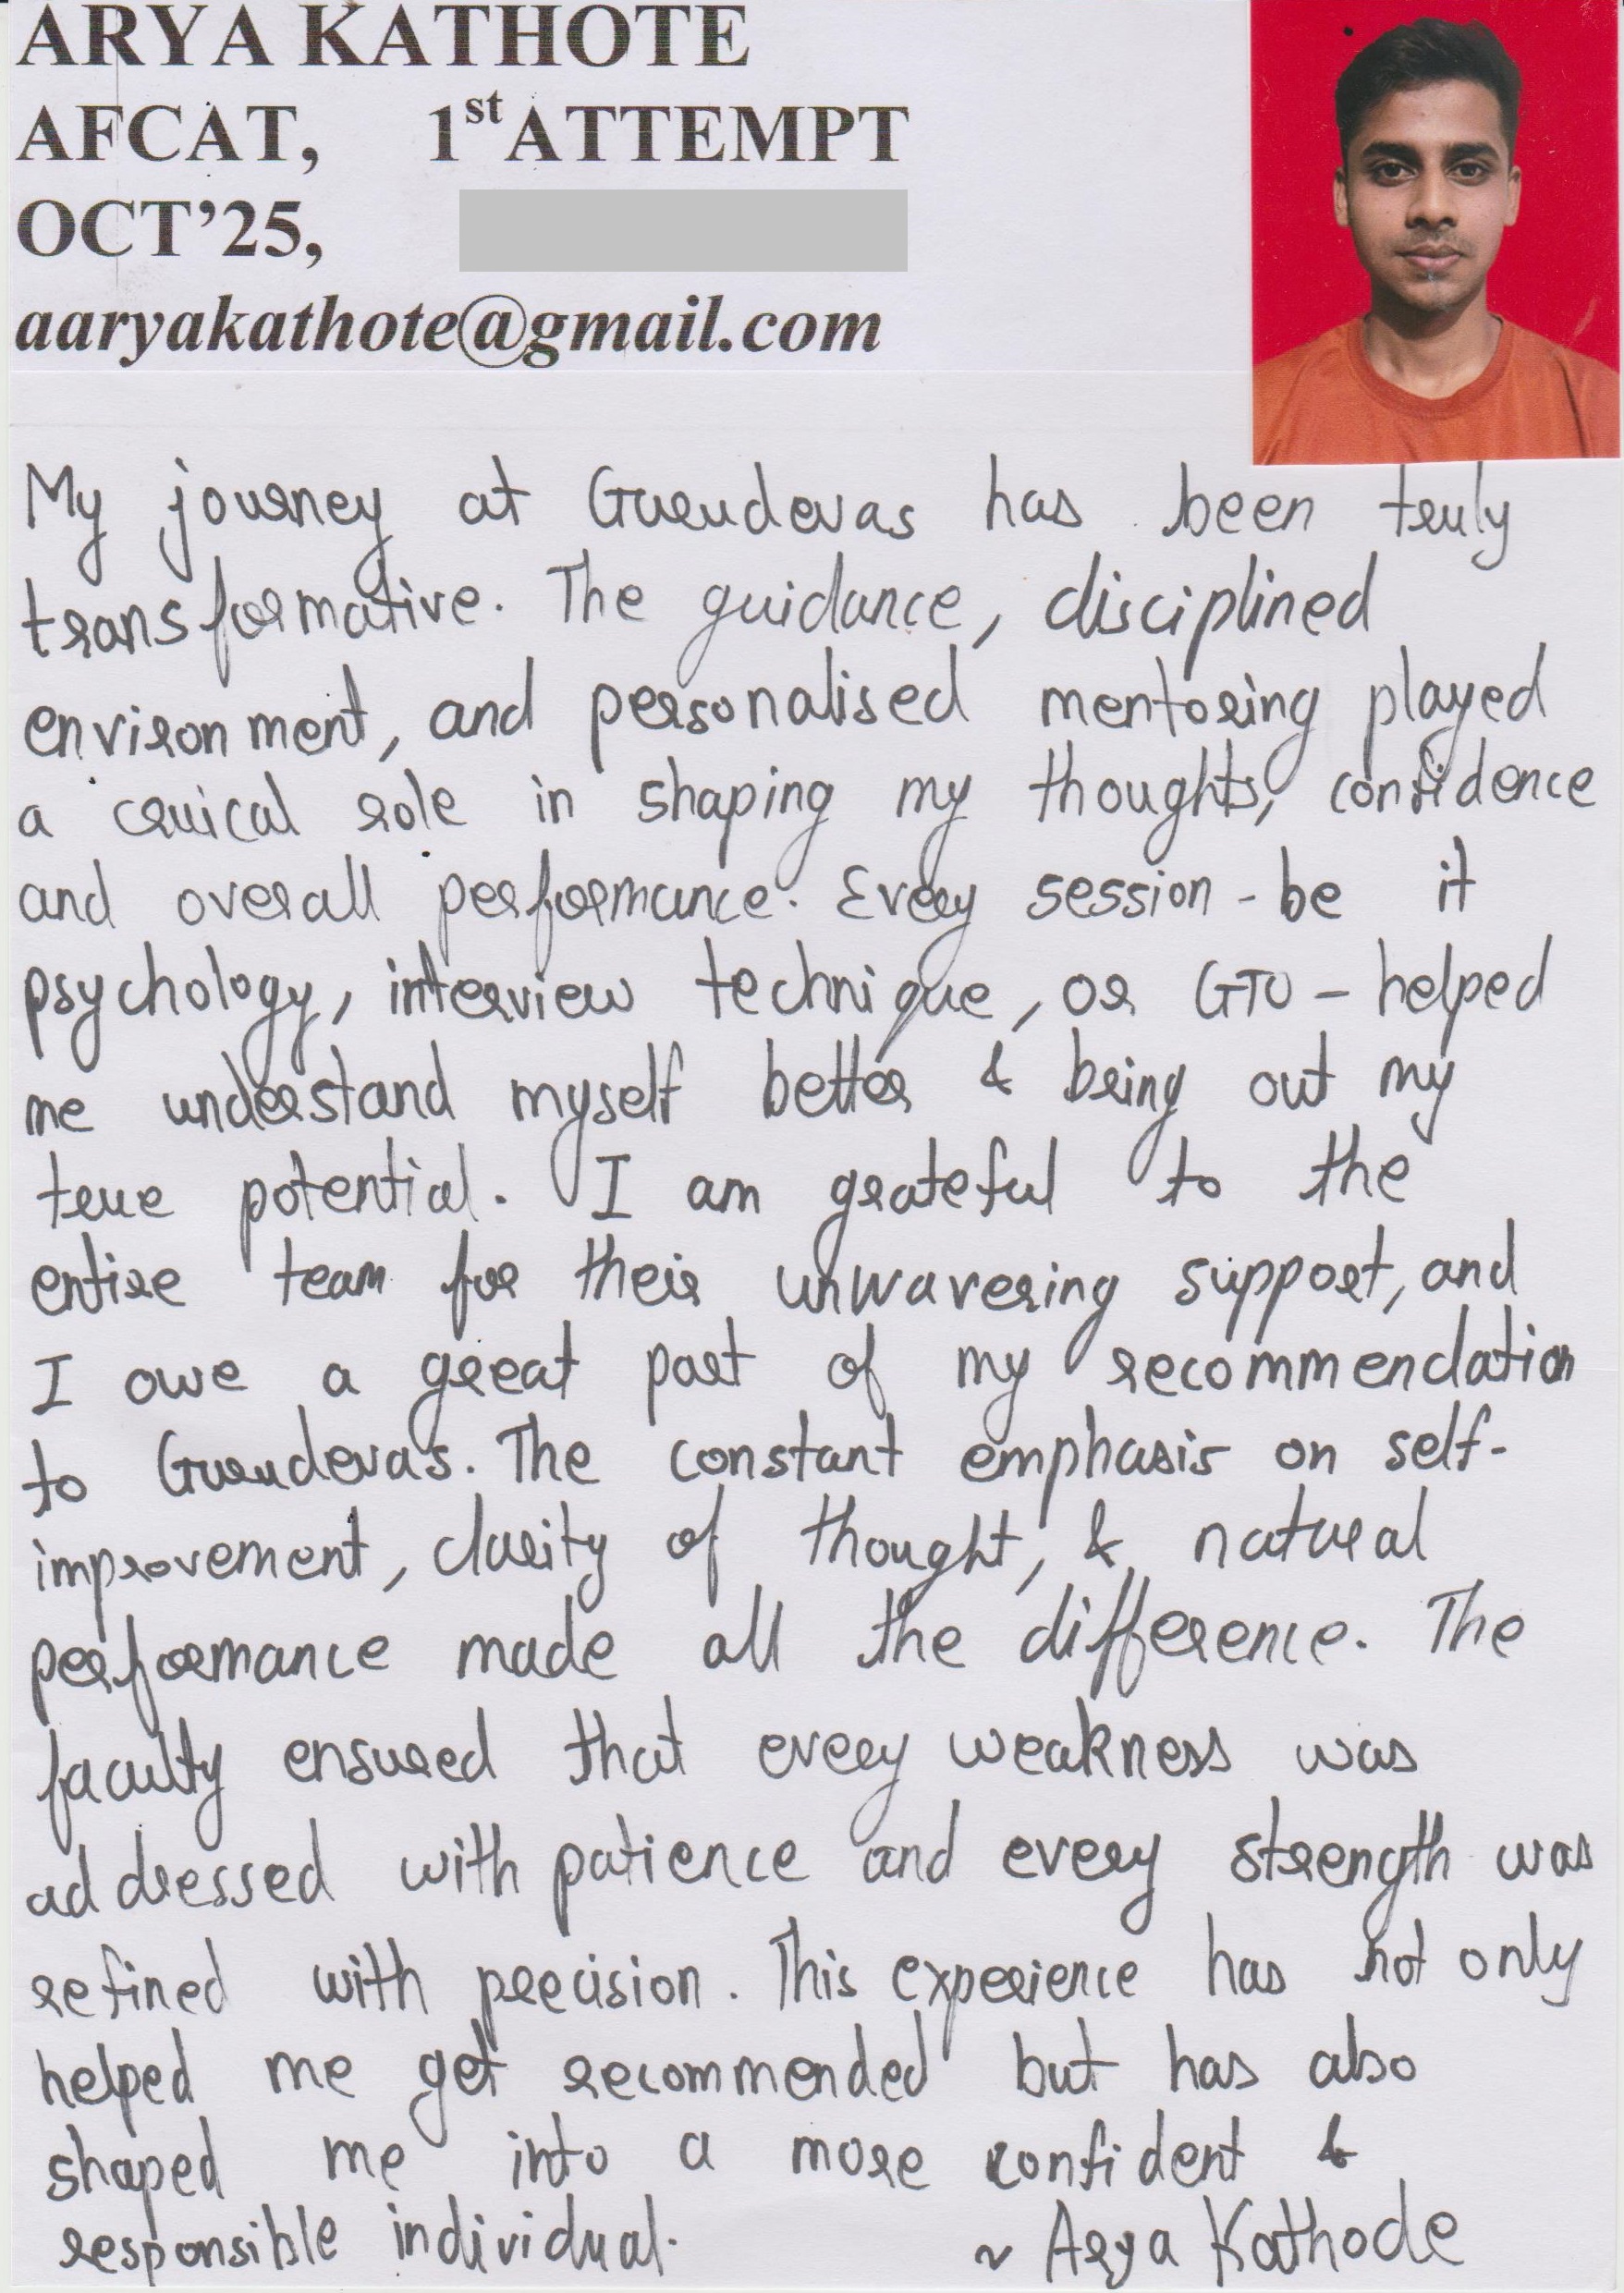 ARYA KATHOTE
AFCAT, 1st ATTEMPT
OCT'25,
aaryakathote@gmail.com
My journey at Gurudevas has been truly
transformative. The guidance, disciplined
environment, and personalised mentoring played
a cruical role in shaping my thoughts, confidence
and overall performance. Every session - be it
psychology, interview technique, or GTO - helped
me understand myself better & bring out my
true potential. I am grateful to the
entire team for their unwavering support, and
I owe a great part of my recommendation
to Gurudevas. The constant emphasis on self-
improvement, clarity of thought, & natural
performance made all the difference. The
faculty ensured that every weakness was
addressed with patience and every strength was
refined with precision. This experience has not only
helped me get recommended but has also
shaped me into a more confident &
responsible individual. ~ Arya Kathode